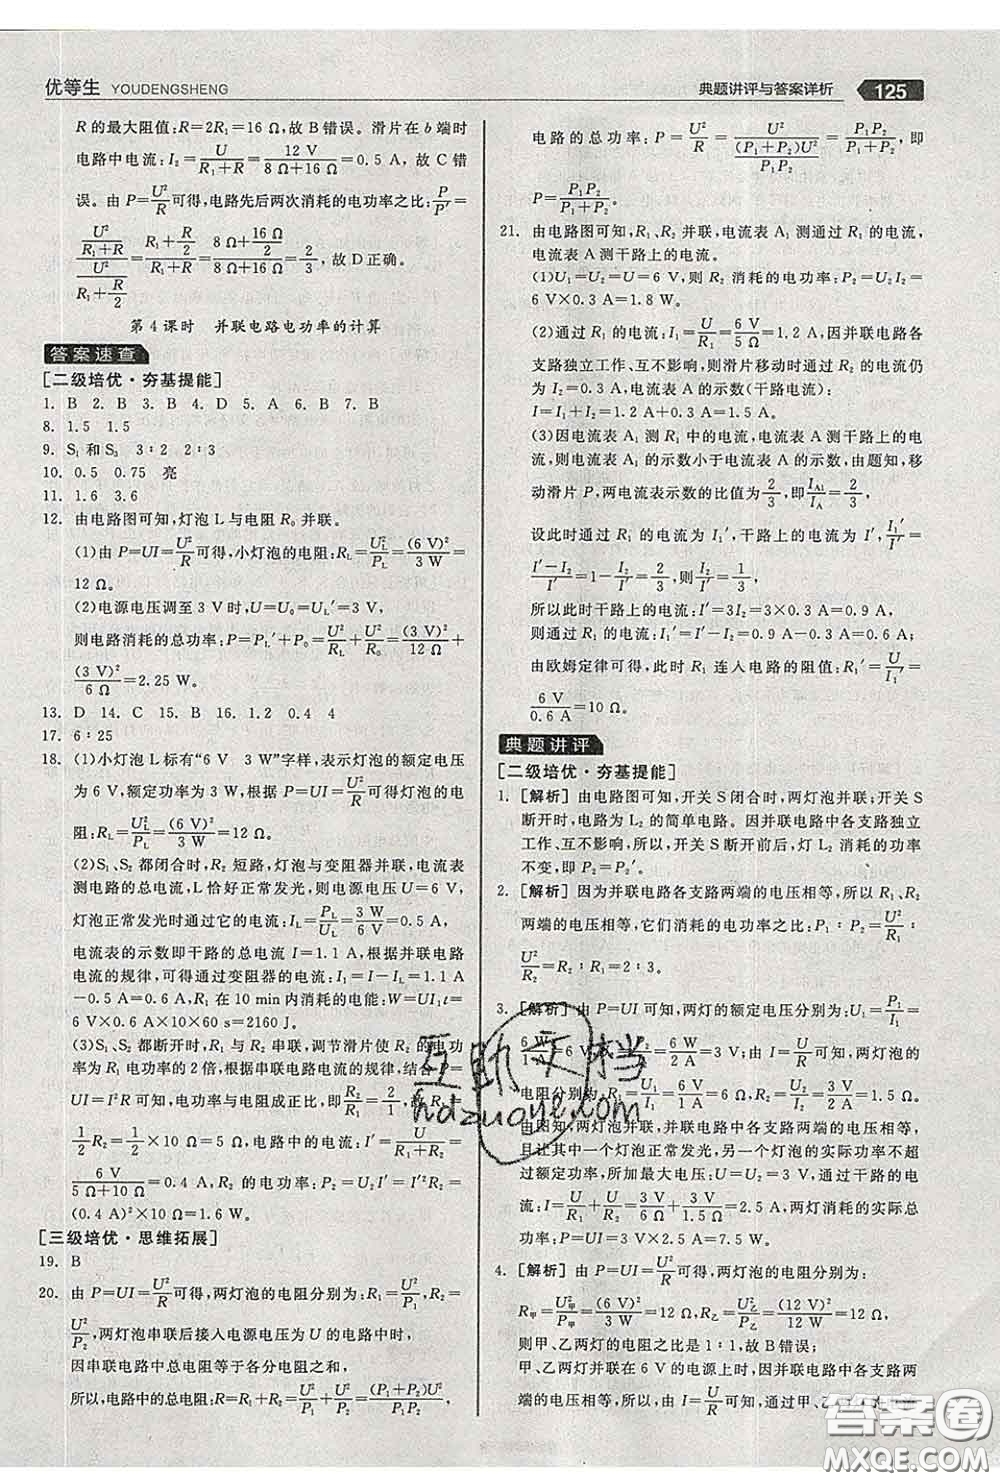 优等生 YOUDENGSHENG
典题讲评与答案详析 125
R的最大阻值:R=2R₁=16 Ω,故B错误。滑片在b端时
电路中电流:I₂=U/(R₁+R)=12 V/(8 Ω+16 Ω)=0.5 A,故C错
误。由P=U²/R可得,电路先后两次消耗的电功率之比:P/P′=
(U²/(R₁+R))/(U²/(R₁+R/2))=(R₁+R/2)/(R₁+R)=(8 Ω+16 Ω/2)/(8 Ω+16 Ω)=2/3,故D正确。
第4课时 并联电路电功率的计算
答案速查
[二级培优·夯基提能]
1. B 2. B 3. B 4. D 5. A 6. B 7. B
8. 1.5 1.5
9. S₁和S₃ 3∶2 2∶3
10. 0.5 0.75 亮
11. 1.6 3.6
12. 由电路图可知,灯泡L与电阻R₀并联。
(1)由P=UI=U²/R可得,小灯泡的电阻:R_L=U_L²/P_L=(6 V)²/3 W=
12 Ω。
(2)电源电压调至3 V时,U=U₀=U_L′=3 V,
则电路消耗的总功率:P=P_L′+P₀=U²/R_L+U²/R₀=(3 V)²/12 Ω+
(3 V)²/6 Ω=2.25 W。
13. D 14. C 15. B 16. 1.2 0.4 4
17. 6∶25
18. (1)小灯泡L标有“6 V 3 W”字样,表示灯泡的额定电压
为6 V,额定功率为3 W,根据P=UI=U²/R可得灯泡的电
阻:R_L=U_L²/P_L=(6 V)²/3 W=12 Ω。
(2)S₁、S₂都闭合时,R₂短路,灯泡与变阻器并联,电流表
测电路的总电流,L恰好正常发光,则电源电压U=6 V,
灯泡正常发光时通过它的电流:I_L=P_L/U_L=3 W/6 V=0.5 A,
电流表的示数即干路的总电流I=1.1 A,根据并联电路
电流的规律,可得通过变阻器的电流:I₁=I-I_L=1.1 A
-0.5 A=0.6 A,R₁在10 min内消耗的电能:W=UI₁t=
6 V×0.6 A×10×60 s=2160 J。
(3)S₁、S₂都断开时,R₁与R₂串联,调节滑片使R₂的电功
率为R₁电功率的2倍,根据串联电路电流的规律,结合P
=UI=I²R可知,电功率与电阻成正比,即R₂=2R₁,故R₁=
1/2 R₂=1/2×10 Ω=5 Ω,电路中的电流:I′=U/(R₁+R₂)=
6 V/(5 Ω+10 Ω)=0.4 A,R₂的电功率:P₂=I′²R₂=
(0.4 A)²×10 Ω=1.6 W。
[三级培优·思维拓展]
19. B
20. 由P=UI=U²/R可得,两灯泡的电阻分别为:R₁=U²/P₁,R₂=
U²/P₂,两灯泡串联后接入电源电压为U的电路中时,
因串联电路中总电阻等于各分电阻之和,
所以,电路中的总电阻:R=R₁+R₂=U²/P₁+U²/P₂=(P₁+P₂)U²/P₁P₂,
电路的总功率:P=U²/R=U²/((P₁+P₂)U²/P₁P₂)=P₁P₂/(P₁+P₂),即
P=P₁P₂/(P₁+P₂)。
21. 由电路图可知,R₁、R₂并联,电流表A₁测通过R₁的电流,
电流表A测干路上的电流。
(1)U₁=U₂=U=6 V,则R₂消耗的电功率:P₂=U₂I₂=
6 V×0.3 A=1.8 W。
(2)通过R₁的电流:I₁=U/R₁=6 V/5 Ω=1.2 A,因并联电路各
支路独立工作、互不影响,则滑片移动时通过R₂的电流仍
为I₂=0.3 A,电流表A的示数(干路电流):
I=I₁+I₂=1.2 A+0.3 A=1.5 A。
(3)因电流表A₁测R₁中的电流,电流表A测干路中的电流,
则电流表A₁的示数小于电流表A的示数,由题知,移
动滑片P,两电流表示数的比值为2/3,即I_A1/I_A=2/3,
设此时通过R₁的电流为I₁′,干路上的电流为I′,则I₁′/I′=
(I′-I₂)/I′=1-I₂/I′=2/3,则I₂/I′=1/3,
所以此时干路上的电流:I′=3I₂=3×0.3 A=0.9 A,
则通过R₁的电流:I₁′=I′-I₂=0.9 A-0.3 A=0.6 A,
由欧姆定律可得,此时R₁连入电路的阻值:R₁′=U/I₁′=
6 V/0.6 A=10 Ω。
典题讲评
[二级培优·夯基提能]
1. [解析] 由电路图可知,开关S闭合时,两灯泡并联;开关S
断开时,电路为L₂的简单电路。因并联电路中各支路独立
工作、互不影响,所以,开关S断开前后,灯L₂消耗的功率
不变,即P₂=P₂′。
2. [解析] 因为并联电路各支路两端的电压相等,所以R₁、R₂
两端的电压相等,它们消耗的电功率之比:P₁∶P₂=U²/R₁∶
U²/R₂=R₂/R₁=2∶3。
3. [解析] 由P=UI可知,两灯的额定电压分别为:U₁=P₁/I₁=
6 W/1 A=6 V,U₂=P₂/I₂=6 W/2 A=3 V,由I=U/R可知,两灯的
电阻分别为:R₁=U₁/I₁=6 V/1 A=6 Ω,R₂=U₂/I₂=3 V/2 A=1.5 Ω,
由图知,两灯泡并联,因并联电路中各支路两端的电压相等,
且其中一个灯泡正常发光,另一个灯泡的实际功率不超过
额定功率,所以,最大电压:U=U₂=3 V,通过干路的电
流:I=U/R₁+U/R₂=3 V/6 Ω+3 V/1.5 Ω=2.5 A,两灯泡的实际总
功率:P=UI=3 V×2.5 A=7.5 W。
4. [解析] 由P=UI=U²/R可知,两灯泡的电阻分别为:
R甲=U甲²/P甲=(6 V)²/3 W=12 Ω,R乙=U乙²/P乙=(12 V)²/12 W=12 Ω,
则甲、乙两灯的电阻之比是1∶1,故B错误;
甲、乙两灯并联在6 V的电源上时,因并联电路中各支路两
端的电压相等,所以,由I=U/R可知,通过甲、乙
互助文档
hdzuoye.com
答案圈
MXQE.COM